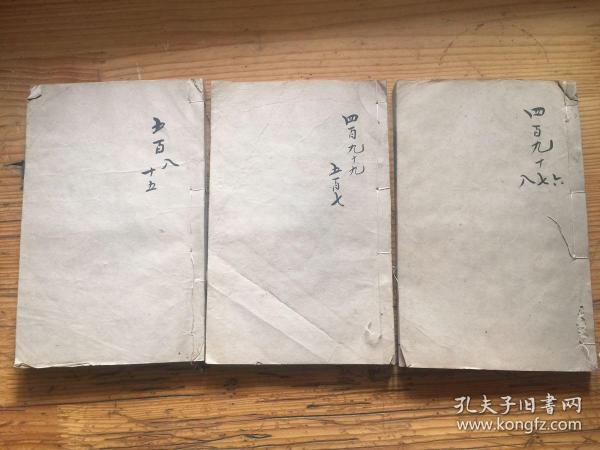 五百八
十五
四百九十九
五百七
四百九十六
七
八
孔夫子旧書网
www.kongfz.com